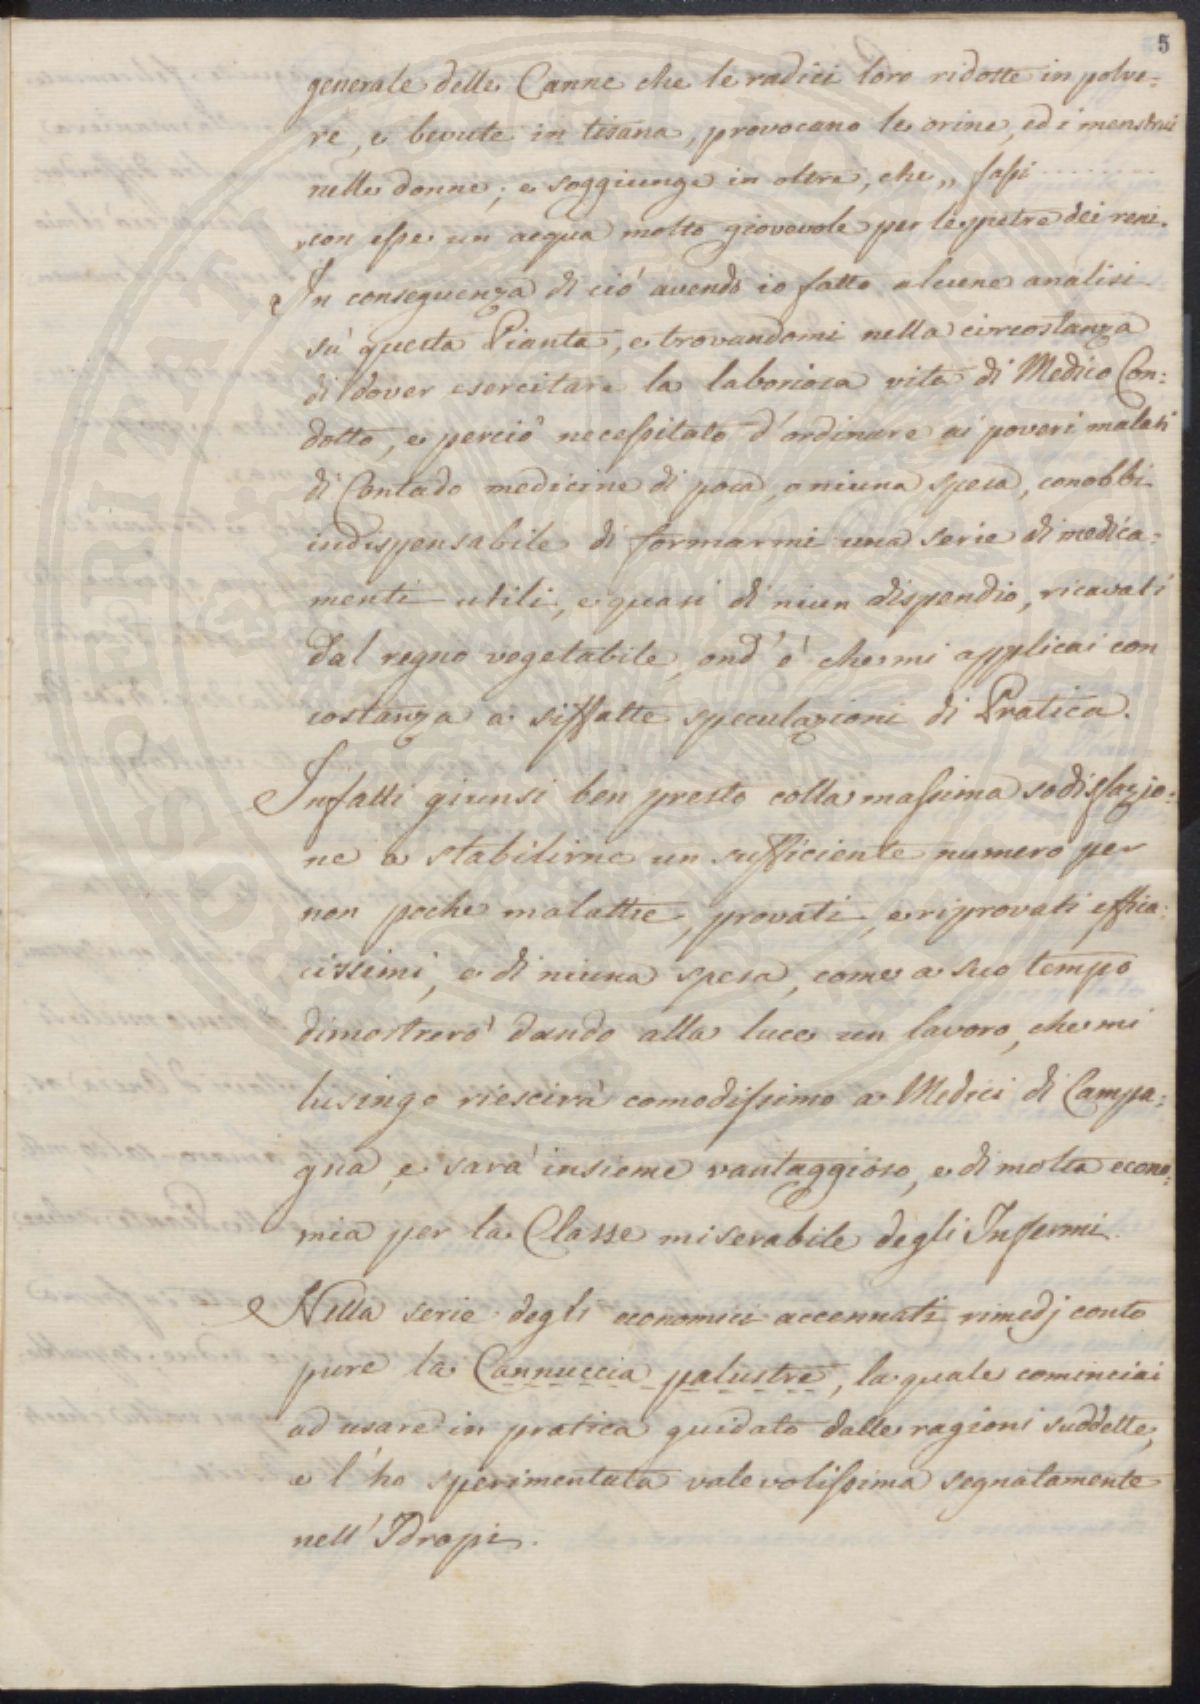 5
generale delle Canne che le radici loro ridotte in polve=
re, e bevute in tisana, provocano le orine, ed i menstrui
nelle donne; e soggiunge in oltre, che „ fassi ........
„ con esse un acqua molto giovevole per le pietre dei reni.
In conseguenza di ciò avendo io fatto alcune analisi
sù questa Pianta, e trovandomi nella circostanza
di dover esercitare la laboriosa vita di Medico Con=
dotto, e perciò necessitato d'ordinare ai poveri malati
di Contado medicine di poca, o niuna spesa, conobbi
indispensabile di formarmi una serie di medica=
menti utili, e quasi di niun dispendio, ricavati
dal regno vegetabile, ond'è che mi applicai con
costanza a siffatte speculazioni di Pratica.
Infatti giunsi ben presto colla massima sodisfazio=
ne a stabilirne un sufficiente numero per
non poche malattie, provati, e riprovati effica=
cissimi, e di niuna spesa, come a suo tempo
dimostrerò dando alla luce un lavoro, che mi
lusingo riescirà comodissimo a Medici di Campa=
gna, e sarà insieme vantaggioso, e di molta econo=
mia per la Classe miserabile degli Infermi.
Nella serie degli economici accennati rimedj conto
pure la Cannuccia palustre, la quale cominciai
ad usare in pratica guidato dalle ragioni suddette,
e l'ho sperimentata valevolissima segnatamente
nell'Idropi.
SPERITATI